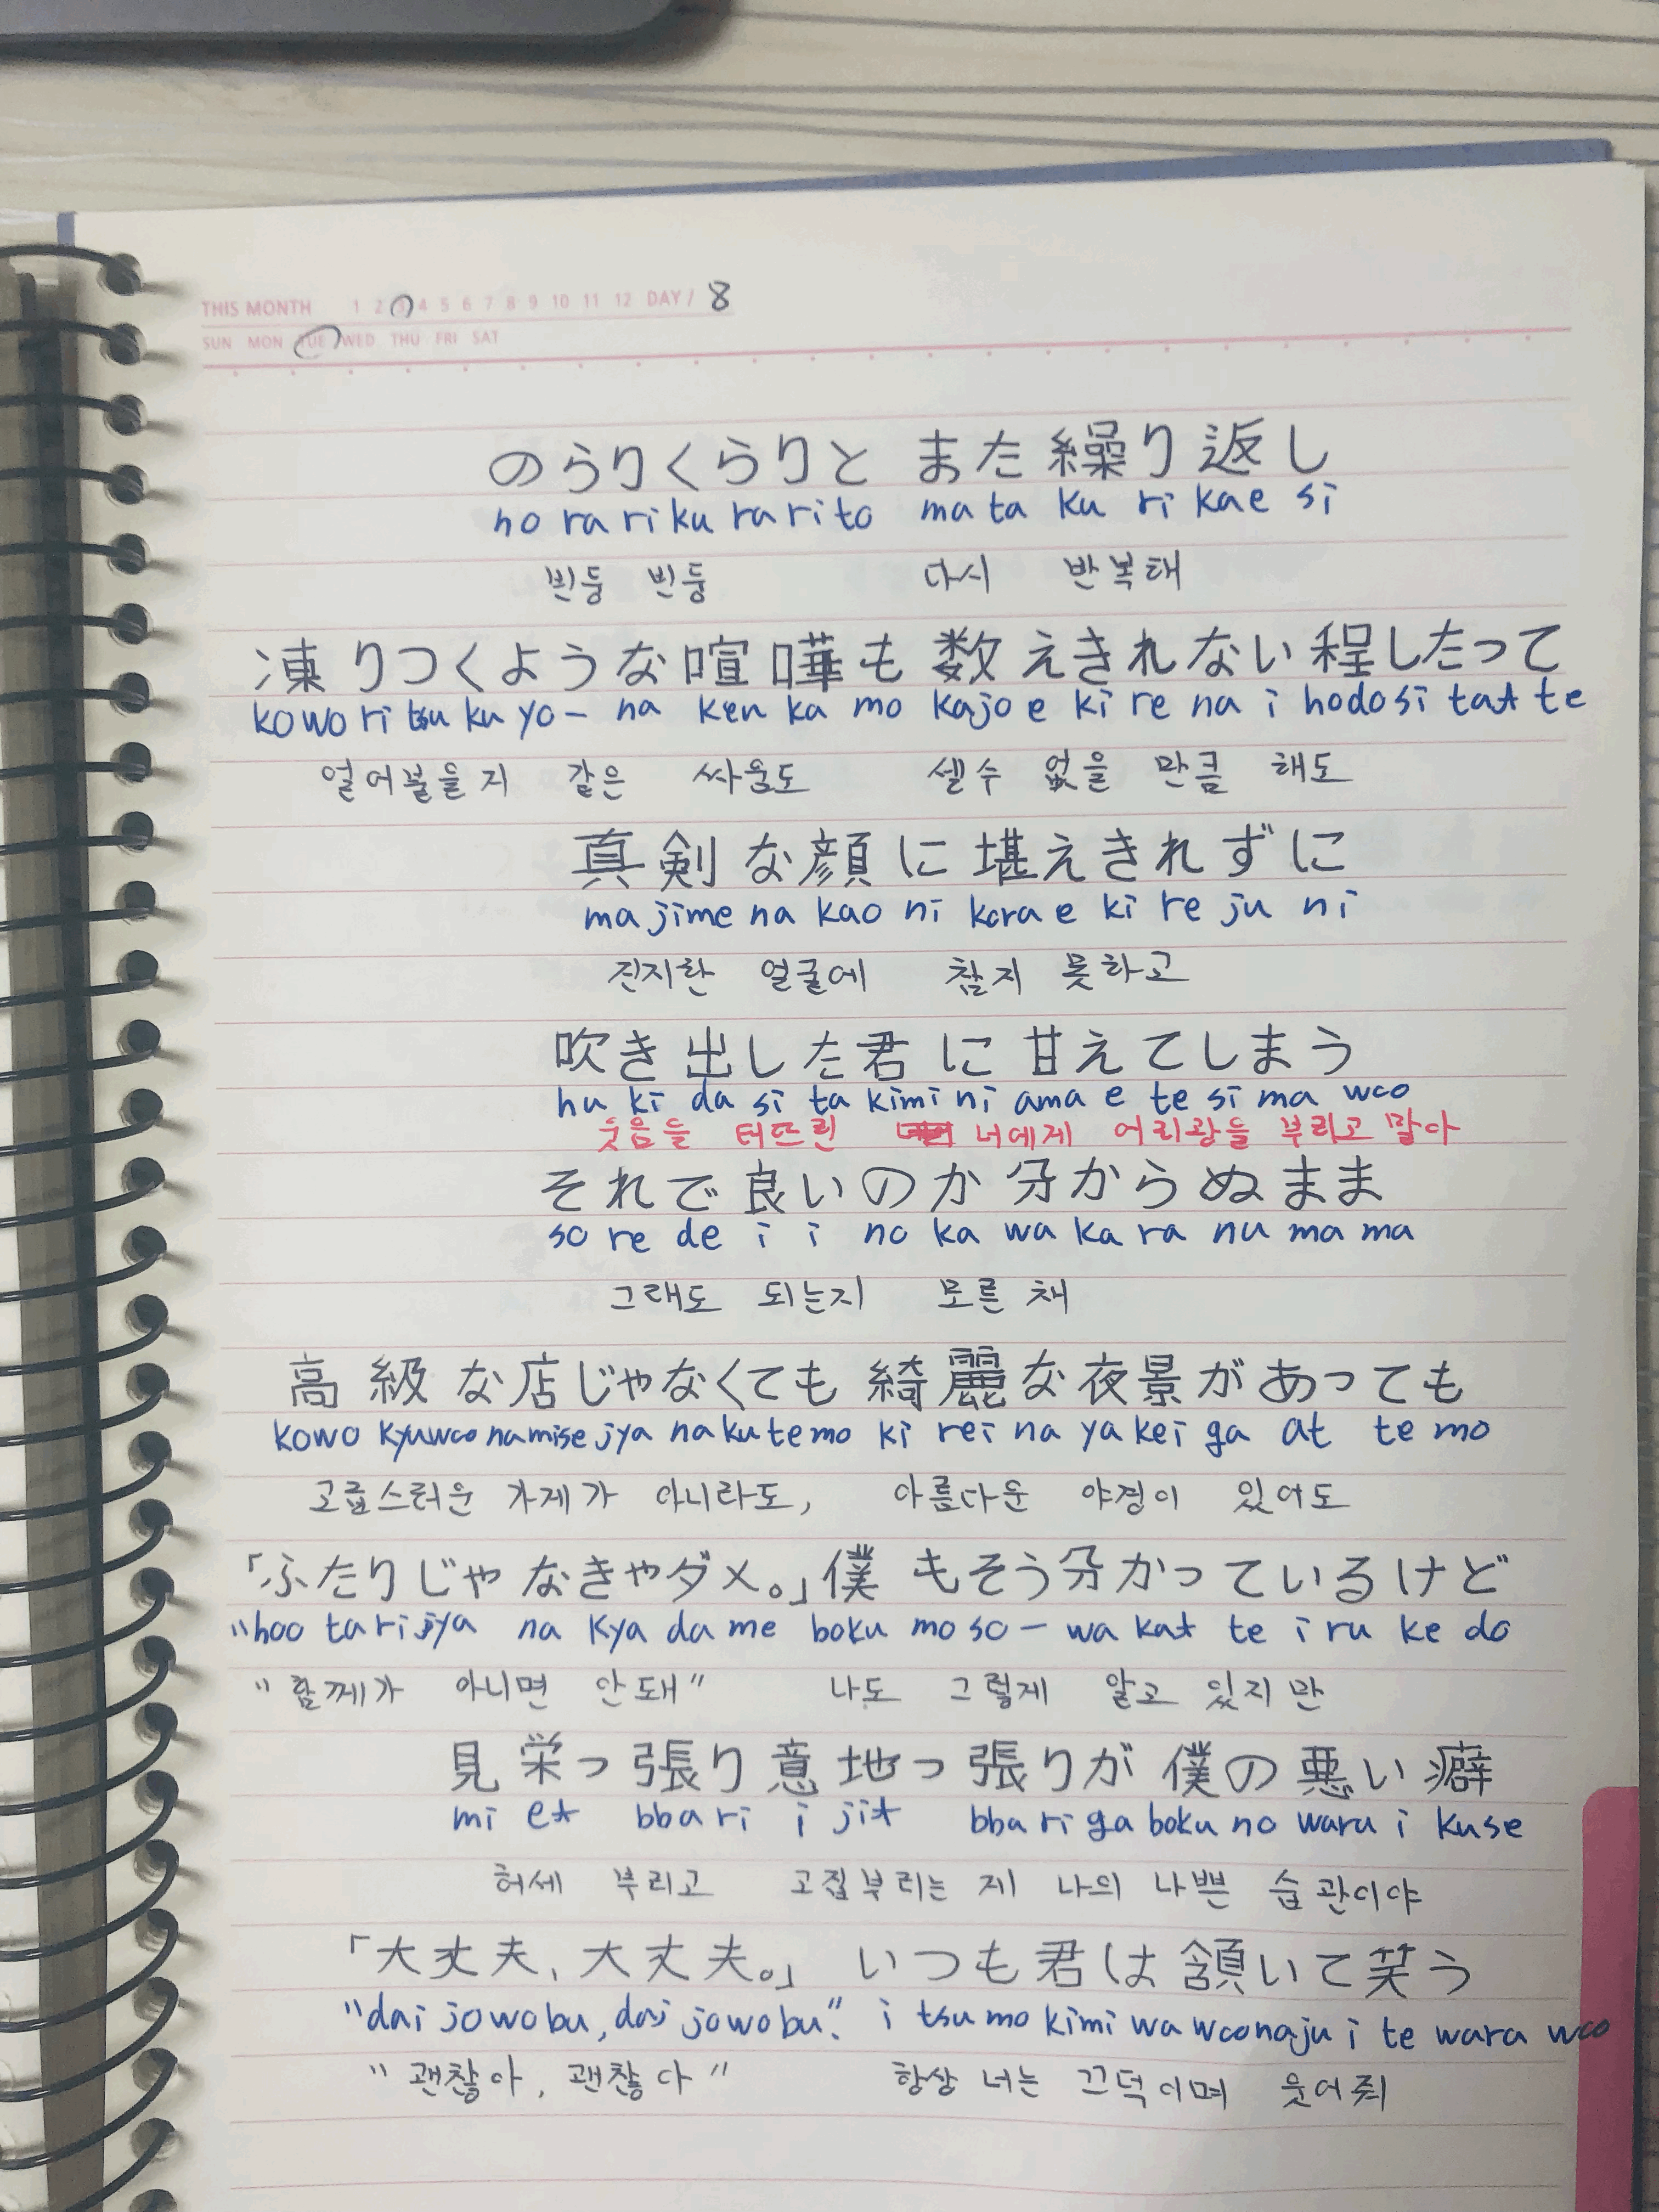 THIS MONTH 1 2 3 4 5 6 7 8 9 10 11 12 DAY / 8
SUN MON TUE WED THU FRI SAT
のらりくらりと また繰り返し
no ra ri ku ra ri to ma ta ku ri kae si
빈둥 빈둥 다시 반복해
凍りつくような喧嘩も数えきれない程したって
kowo ri tsu ku yo- na ken ka mo kajo e ki re na i hodo si tat te
얼어붙을지 같은 싸움도 셀수 없을 만큼 해도
真剣な顔に堪えきれずに
ma jime na kao ni kora e ki re ju ni
진지한 얼굴에 참지 못하고
吹き出した君に甘えてしまう
hu ki da si ta kimi ni ama e te si ma woo
웃음을 터뜨린 너에게 어리광을 부리고 말아
それで良いのか分からぬまま
so re de i i no ka wa ka ra nu ma ma
그래도 되는지 모른 채
高級な店じゃなくても綺麗な夜景があっても
kowo kyuwoo na mise jya na ku te mo ki rei na ya kei ga at te mo
고급스러운 가게가 아니라도, 아름다운 야경이 있어도
「ふたりじゃなきゃダメ。」僕もそう分かっているけど
"hoo ta ri jya na kya da me boku mo so- wa kat te i ru ke do
"함께가 아니면 안돼" 나도 그렇게 알고 있지만
見栄っ張り意地っ張りが僕の悪い癖
mi et bba ri i jit bba ri ga boku no waru i kuse
허세 부리고 고집부리는 게 나의 나쁜 습관이야
「大丈夫、大丈夫。」いつも君は頷いて笑う
"dai jowo bu, dai jowo bu." i tsu mo kimi wa woonaju i te wara woo
"괜찮아, 괜찮아" 항상 너는 끄덕이며 웃어줘